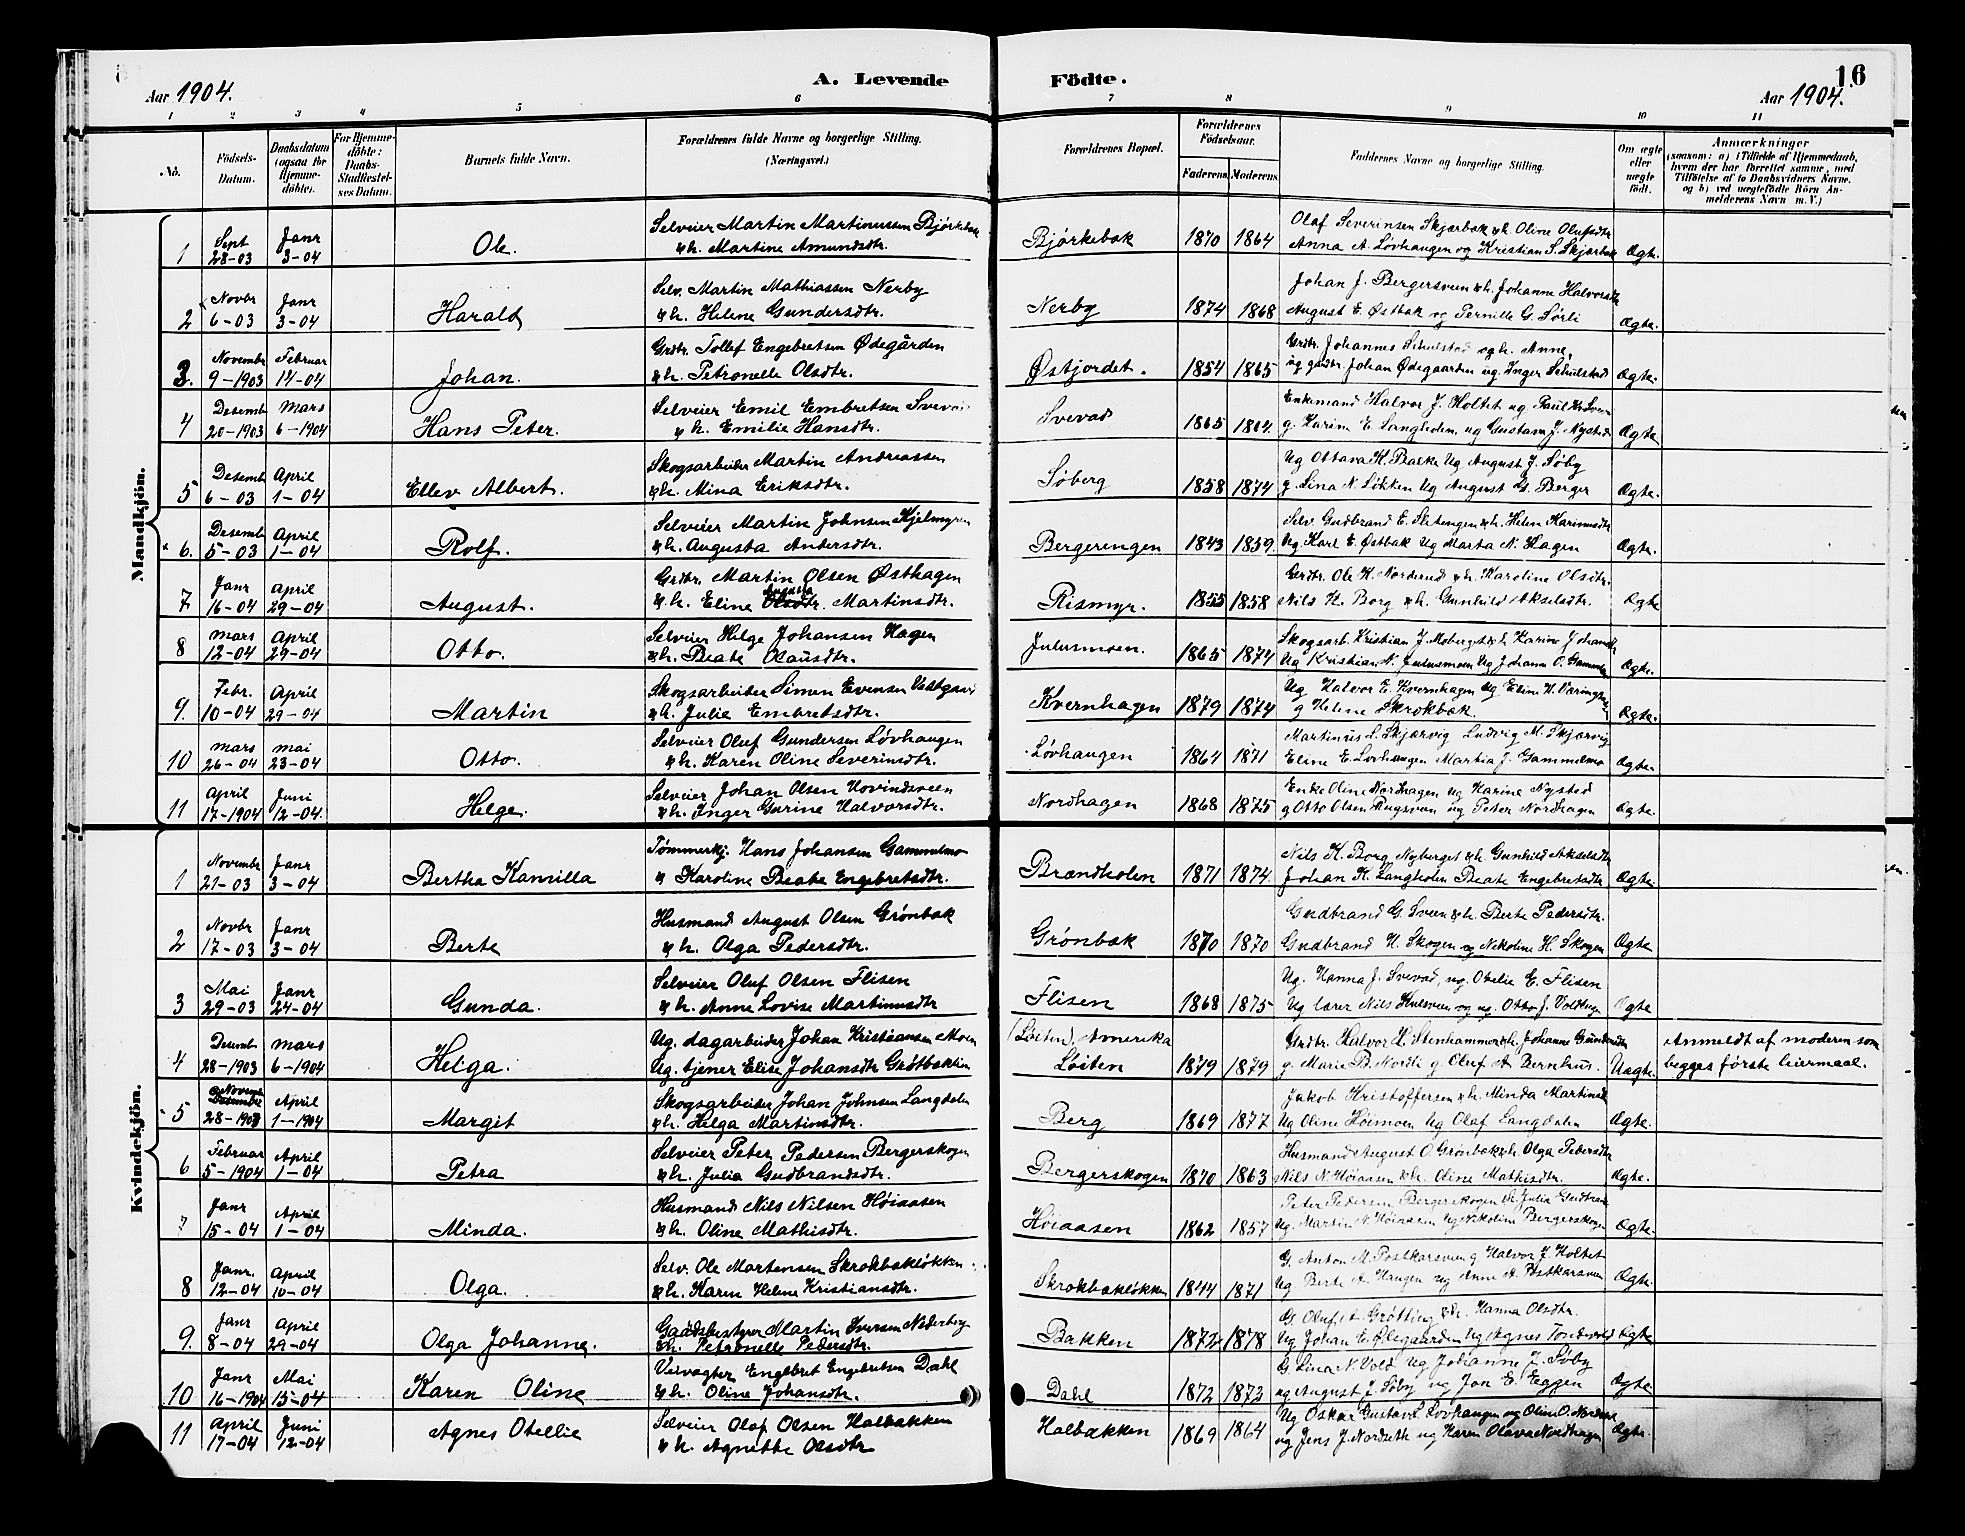 Aar 1904.
A. Levende
Födte.
16
Aar 1904.
1 2 3 4 5 6 7 8 9 10 11
No.
Födsels-Datum.
Daabsdatum (ogsaa for Hjemmedöbte).
For Hjemmedöbte: Daabs-Stadfæstelses Datum.
Barnets fulde Navn.
Forældrenes fulde Navne og borgerlige Stilling. (Næringsvei.)
Forældrenes Bopæl.
Forældrenes Födselsaar.
Faderens Moderens
Faddernes Navne og borgerlige Stilling.
Om ægte eller uægte födt.
Anmærkninger
(saasom: a) i Tilfælde af Hjemmedaab, hvem der har forrettet samme, med Tilföielse af to Daabsvidners Navne. og b) ved uægtefödte Börn Anmelderens Navn m. V.)
Mandkjön.
1 Sept 28-03 Janr 3-04 Ole. Selveier Martin Martinussen Bjørkebæk Bjørkebæk 1870 1864 Olaf Severinsen Skjærbæk & h. Oline Olufsdtr Ægte.
& h. Martine Amundsdtr. Anna A. Løvhaugen og Kristian S. Skjærbæk
2 Novbr 6-03 Janr 3-04 Harald Selv. Martin Mathiassen Nerby Nerby 1874 1868 Johan J. Bergersveen & h. Johanne Halvorsdtr Ægte.
& h. Helene Gundersdtr. August E. Østbæk og Pernille G. Sørli
3. Novembr 9-1903 Februar 14-04 Johan. Grdbr. Tollef Engebretsen Ødegården Østjordet. 1854 1865 Grdbr. Johannes Schulstad og h. Anne, Ægte.
& h. Petronelle Olsdtr. Johan Ødegaarden ug. Inger Schulstad
4 Desemb 20-1903 Mars 6-1904 Hans Peter. Selveier Emil Embretsen Svevad Svevad 1865 1864. Enkemand Halvor J. Holtet ug Paul Ægte
& h. Emilie Hansdtr. g. Karine E. Langholen, ug Gustava J. Nystad
5 Desemb 6-03 April 1-04 Ellev Albert. Skogsarbeider Martin Andreassen Søberg 1858 1874 Ug Ottava H. Bakke Ug August J. Søby Ægte.
& h. Mina Eriksdtr. g Lina N. Løkken Ug August G. Berger
6. Desemb 5-03 April 1-04 Rolf. Selveier Martin Johnsen Kjelmyren Bergeringen 1843 1859. Selv. Gudbrand E. Sletengen & h. Helene Karinusdtr Ægte.
& h. Augusta Andersdtr. Ug. Karl E. Østbæk Ug Marta N. Hagen
7 Janr 16-04 April 29-04 August. Grdbr. Martin Olsen Østhagen Rismyr. 1855 1858 Grdbr. Ole K. Norderud & h. Karoline Olsdtr. Ægte
& h. Eline Augusta Olsdtr. Martinsdtr. Nils H. Borg & h. Gunhild Akselsdtr.
8 Mars 12-04 April 29-04 Otto. Selveier Helge Johansen Hagen Julusmoen. 1865 1874 Skogsarb. Kristian J. Moberget & h. Karine Johansdtr Ægte.
& h. Beate Olausdtr. Ug Kristian N. Julusmoen Ug Johanne O. Gammelmo
9. Febr. 10-04 April 29-04 Martin Skogsarbeider Simen Evensen Vestgaard Kvernhagen 1879 1874 Ug Halvor E. Kvernhagen Ug Eline H. Ægte.
& h. Julie Embretsdtr. g Helene Skrokbæk.
10 Mars 26-04 Mai 23-04 Otto. Selveier Oluf Gundersen Løvhaugen Løvhaugen 1864 1871 Martinus L. Skjærvig Ludvig M. Skjærvig Ægte.
& h. Karen Oline Severinsdtr. Eline E. Lovhaugen Martia J. Gammelmo
11 April 17-1904 Juni 12-04. Helge. Selveier Johan Olsen Hovindsveen Nordhagen 1868 1875 Enke Oline Nordhagen ug Karine Nystad Ægte
& h. Inger Gurine Halvorsdtr. g Otto Olsen ug Peter Nordhagen
Kvindekjön.
1 Novembr 21-03 Janr 3-04 Bertha Kamilla Tømmerkj. Hans Johansen Gammelmo Brændholen 1871 1874. Nils H. Borg Nyberget & h. Gunhild Akselsdtr Ægte.
& Karoline Beate Engebretsdtr. Johan K. Langholen Beate Engebretsdtr
2 Novbr 17-03 Janr 3-04 Berte Husmand August Olsen Grønbæk Grønbæk 1870 1870 Gudbrand G. Sveen & h. Berte Pedersdtr. Ægte
& h. Olga Pedersdtr. Gudbrand H. Skogen og Nikoline H. Skogen
3 Mai 29-03 Janr 24-04 Gunda. Selveier Oluf Olsen Flisen Flisen 1868 1875 Ug. Hanna J. Svevad, ug. Otelie E. Flisen Ægte
& h. Anne Lovise Martinusdtr Ug lærer Nils og ug. Otto J.
4 Desemb 28-1903 Mars 6-1904 Helga. Ug. dagarbeider Johan Kristiansen Moen (Løiten), Amerika 1879 1879 Grdbr. Halvor H. Stenhammer & h. Johanne Gundersdtr Uægte. Anmeldt af moderen som
Ug. tjener Elise Johansdtr Grøtbækken Løiten g. Marie B. Nordli g Oluf A Bernhus. begges første leiermaal.
5 Novembr Desembr 28-1903 April 1-1904 Margit Skogsarbeider Johan Johnsen Langdalen Berg 1869 1877 Jakob Kristoffersen & h. Minda Martinsdtr Ægte.
& h. Helga Martinsdtr. Ug Oline Høimoen Ug Olaf Langdalen
6 Februar 5-1904 April 1-04 Petra Selveier Peter Pedersen Bergerskogen Bergerskogen 1870 1863 Husmand August O. Grønbæk & h. Olga Pedersdtr Ægte.
& h. Julia Gudbrandsdtr. Nils N. Høiaasen & h. Oline Mathisdtr.
7 Janr 15-04 April 1-04 Minda. Husmand Nils Nilsen Høiaasen Høiaasen 1862 1857 Peter Pedersen Bergerskogen & h. Julia Gudbran Ægte.
& h. Oline Mathisdtr. Ug. Martin N. Høiaasen Ug Nikoline Bergerskogen
8 Janr. 12-04 April 10-04 Olga. Selv. Ole Martensen Skrokbækløkken Skrokbækløkken 1844 1871 G. Anton M. Postkarsveen g Halvor J. Holtet Ægte.
& h. Karen Helene Kristiansdtr. Ug Berte A. Haugen ug Anne A. Postkarsveen
9. Janr 8-04 April 29-04 Olga Johanne. Gaardsbestyrer Martin Iversen Nederberg Bakken 1872 1878 G. Oluf A. Grøtting & h. Hanna Olsdtr. Ægte
& h. Petronelle Pedersdtr. Ug Johan E. Ødegaarden Ug Agnes
10 Janr 16-1904 Mai 15-04 Karen Oline Veivogter Engebret Engebretsen Dahl Dahl 1872 1873 G. Lina N. Vold ug Johanne J. Søby Ægte
& h. Oline Johansdtr. ug August J. Søby ug Jon E. Eggen
11 April 17-04 Juni 12-04 Agnes Otellie Selveier Olaf Olsen Kalbækken Kalbækken 1869 1864 Ug Oskar Gustav L. Lovhaugen og Oline O. Ægte.
& h. Agnethe Olsdtr ug Jens J. Nordseth ug Karen Olava Nordhagen